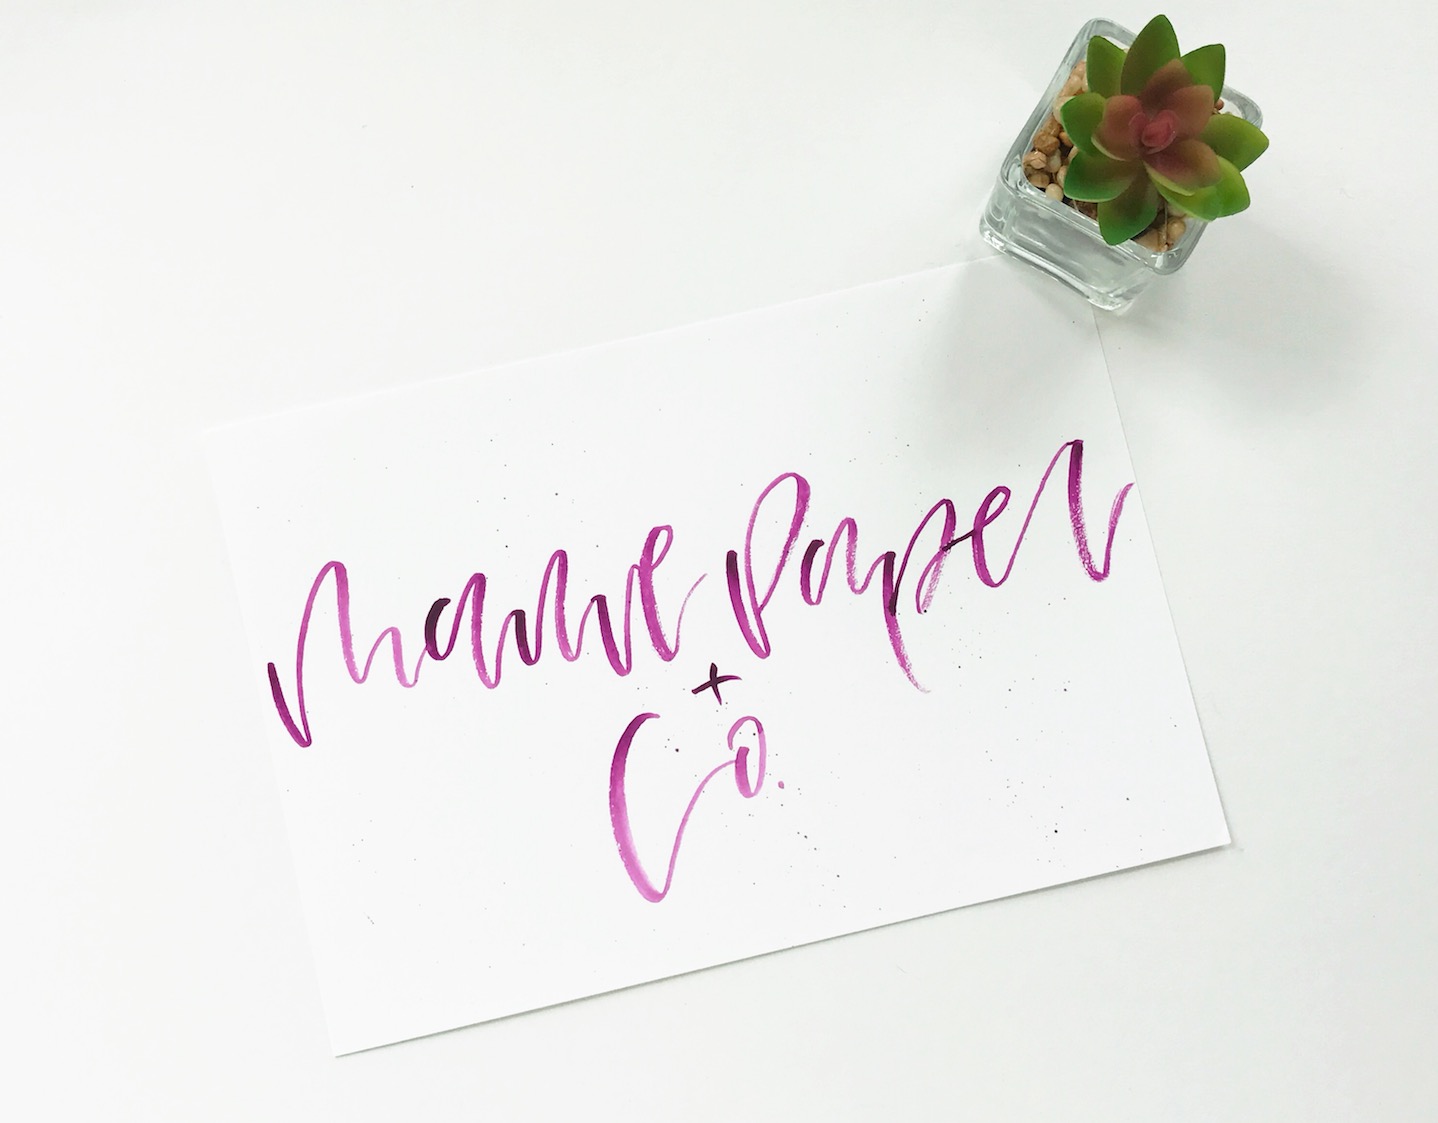 Mauve Paper
+
Co.